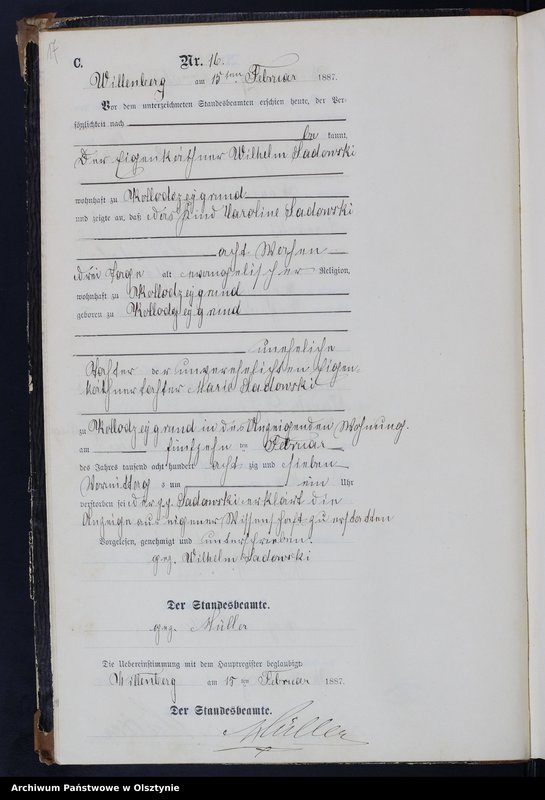 17
C.
Nr. 16.
Willenberg am 15ten Februar 1887.
Vor dem unterzeichneten Standesbeamten erschien heute, der Per-
sönlichkeit nach
be kannt,
Der Eigenkäthner Wilhelm Sadowski
wohnhaft zu Kollodzeygrund
und zeigte an, daß das Kind Karoline Sadowski
acht Wochen
drei Tage alt evangelischer Religion,
wohnhaft zu Kollodzeygrund
geboren zu Kollodzeygrund
uneheliche
Tochter der unverehelichten Eigen-
käthnertochter Marie Sadowski
zu Kollodzeygrund in des Anzeigenden Wohnung.
am fünfzehn ten Februar
des Jahres tausend acht hundert acht zig und sieben
Vormittag s um ein Uhr
verstorben sei der p. Sadowski erklärt die
Anzeige aus eigener Wissenschaft zu erstatten
Vorgelesen, genehmigt und unterschrieben.
gez. Wilhelm Sadowski
Der Standesbeamte.
gez. Müller
Die Uebereinstimmung mit dem Hauptregister beglaubigt.
Willenberg am 15 ten Februar 1887.
Der Standesbeamte.
Müller
Archiwum Państwowe w Olsztynie